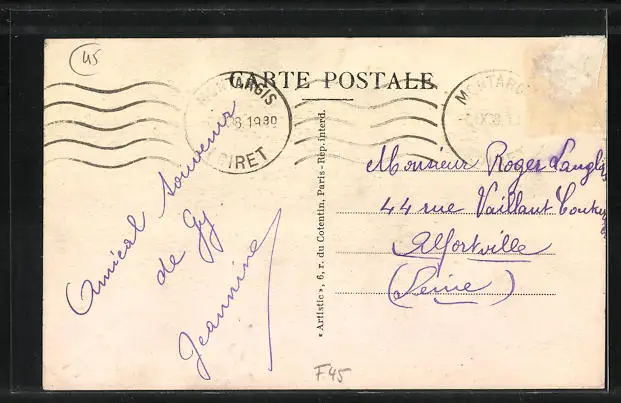 45
CARTE POSTALE
MONTARGIS
8.1930
LOIRET
MONTARGIS
Amical Souvenir
de Gy
Jeannine
« Artistic », 6, r. du Cotentin, Paris - Rép. interd.
Monsieur Roger
44 rue Vaillant
Alfortville
(Seine)
F45